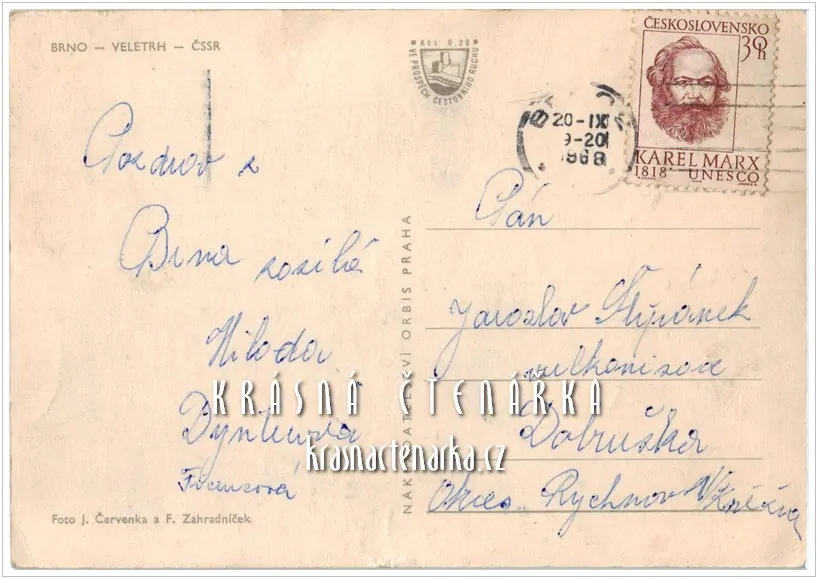 BRNO – VELETRH – ČSSR
Kčs 0,20
VE PROSPĚCH CESTOVNÍHO RUCHU
20-IX
9-20
1968
ČESKOSLOVENSKO
30h
KAREL MARX
1818 UNESCO
Pozdrav z
Brna posílá
Miloda
Francová
NAKLADATELSTVÍ ORBIS PRAHA
Pán
Jaroslav Štěpánek
vulkanizace
Dobruška
Okres Rychnov n/Kněžnou
KRÁSNÁ ČTENÁŘKA
krasnactenarka.cz
Foto J. Červenka a F. Zahradníček